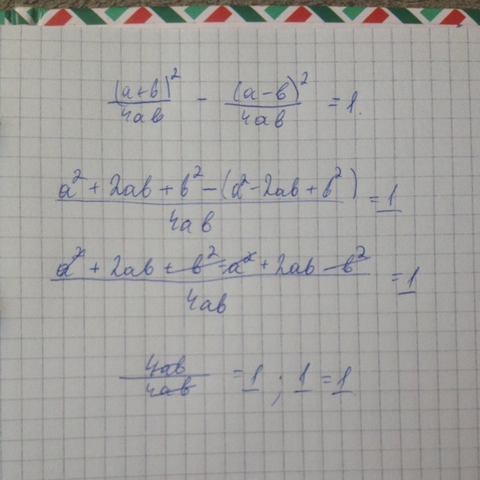 (a+b)² / 4ab - (a-b)² / 4ab = 1.
a² + 2ab + b² - (a² - 2ab + b²) / 4ab = 1
a² + 2ab + b² - a² + 2ab - b² / 4ab = 1
4ab / 4ab = 1 ; 1 = 1